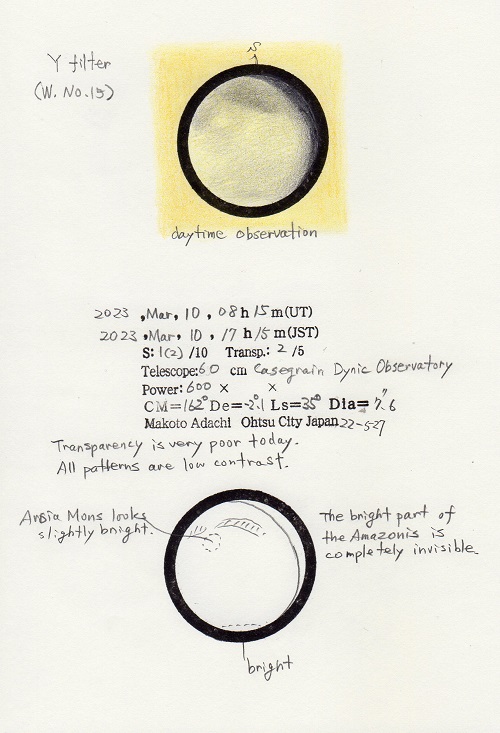 S
Y filter
(W. No.15)
daytime observation
2023 , Mar, 10 , 08 h 15 m(UT)
2023 , Mar, 10 , 17 h 15 m(JST)
S: 1(2) /10 Transp.: 2 /5
Telescope:60 cm Casegrain Dynic Observatory
Power: 600 × ×
CM=162° De=-2.1 Ls=35° Dia=7.6"
Makoto Adachi Ohtsu City Japan 22-527
Transparency is very poor today.
All patterns are low contrast.
Arsia Mons looks
slightly bright.
The bright part of
the Amazonis is
completely invisible.
bright